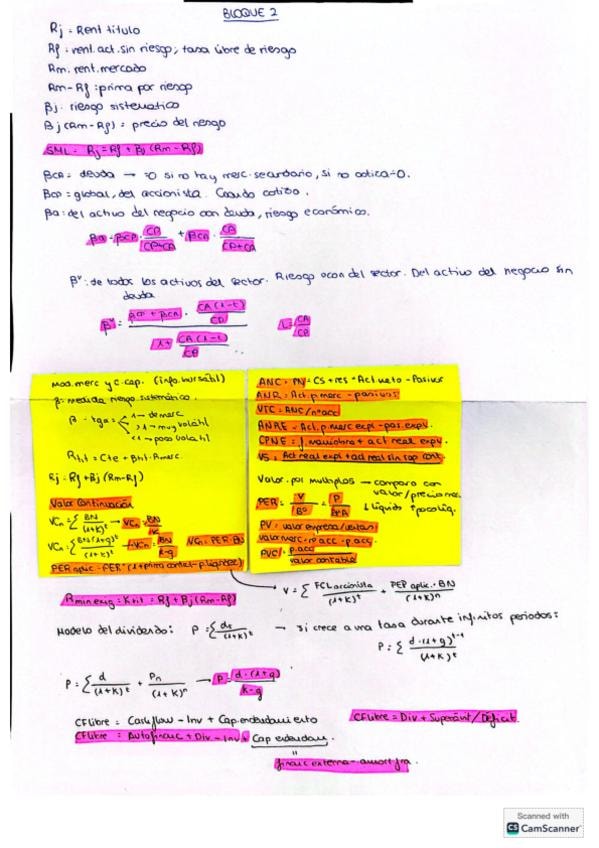 BLOQUE 2
Rj = Rent título
Rf = rent. act. sin riesgo, tasa libre de riesgo
Rm: rent. mercado
Rm - Rf : prima por riesgo
βj: riesgo sistemático
βj (Rm - Rf) = precio del riesgo
SML = Rj = Rf + βj (Rm - Rf)
βCA = deuda → =0 si no hay merc. secundario, si no cotiza=0.
βCP = global, del accionista. Cuando cotiza.
βa: del activo del negocio con deuda, riesgo económico.
βa = βCP · CP/(CP+CA) + βCA · CA/(CP+CA)
βu: de todos los activos del sector. Riesgo econ del sector. Del activo del negocio sin
deuda
βu = (βCP + βCA · CA(1-t)/CP) / (1 + CA(1-t)/CP)
L = CA/CP
Mod. merc y C. cap. (info. bursátil)
β = medida riesgo sistemático.
β = tga = 1 → de merc
>1 → muy volátil
<1 → poco volátil
Rtit = Cte + βtit · Rmerc
Rj = Rf + βj (Rm - Rf)
Valor Continuación
VCn = Σ BN/(1+K)^t → VCn = BN/K
VCn = Σ BN(1+g)^t/(1+K)^t → VCn = BN/(K-g) VCn = PER · BN
ANC = PN = CS + res = Act. neto - Pasivos
ANR = Act. p. merc - pasivos
VTC = ANC / nº acc
ANRE = Act. p. merc expl - pas. expl.
CPNE = f. maniobra + act real expl.
VS = Act real expl + act real sin sop cont.
Valor. por multiplos → comparo con
valor/precio mer.
PER = V/Bº = P/BPA
PV = valor empresa/ventas
valor merc = nº acc · p. acc
PVC = p. acc / valor contable
V = Σ FCL accionista/(1+K)^t + PER aplic. · BN/(1+K)^n
R min exig = K tit = Rf + βj (Rm - Rf)
Modelo del dividendo: P = Σ dt/(1+K)^t → si crece a una tasa durante infinitos periodos:
P = Σ d · (1+g)^t-1/(1+K)^t
P = Σ d/(1+K)^t + Pn/(1+K)^n → P = d · (1+g)/(K-g)
CF libre = Cashflow - Inv + Cap. endeudamiento
CF libre = Div + Superávit / Déficit.
CF libre = Autofinanc + Div - Inv + Cap endeudam.
=
financ externa - amort fra.
Scanned with
CS CamScanner